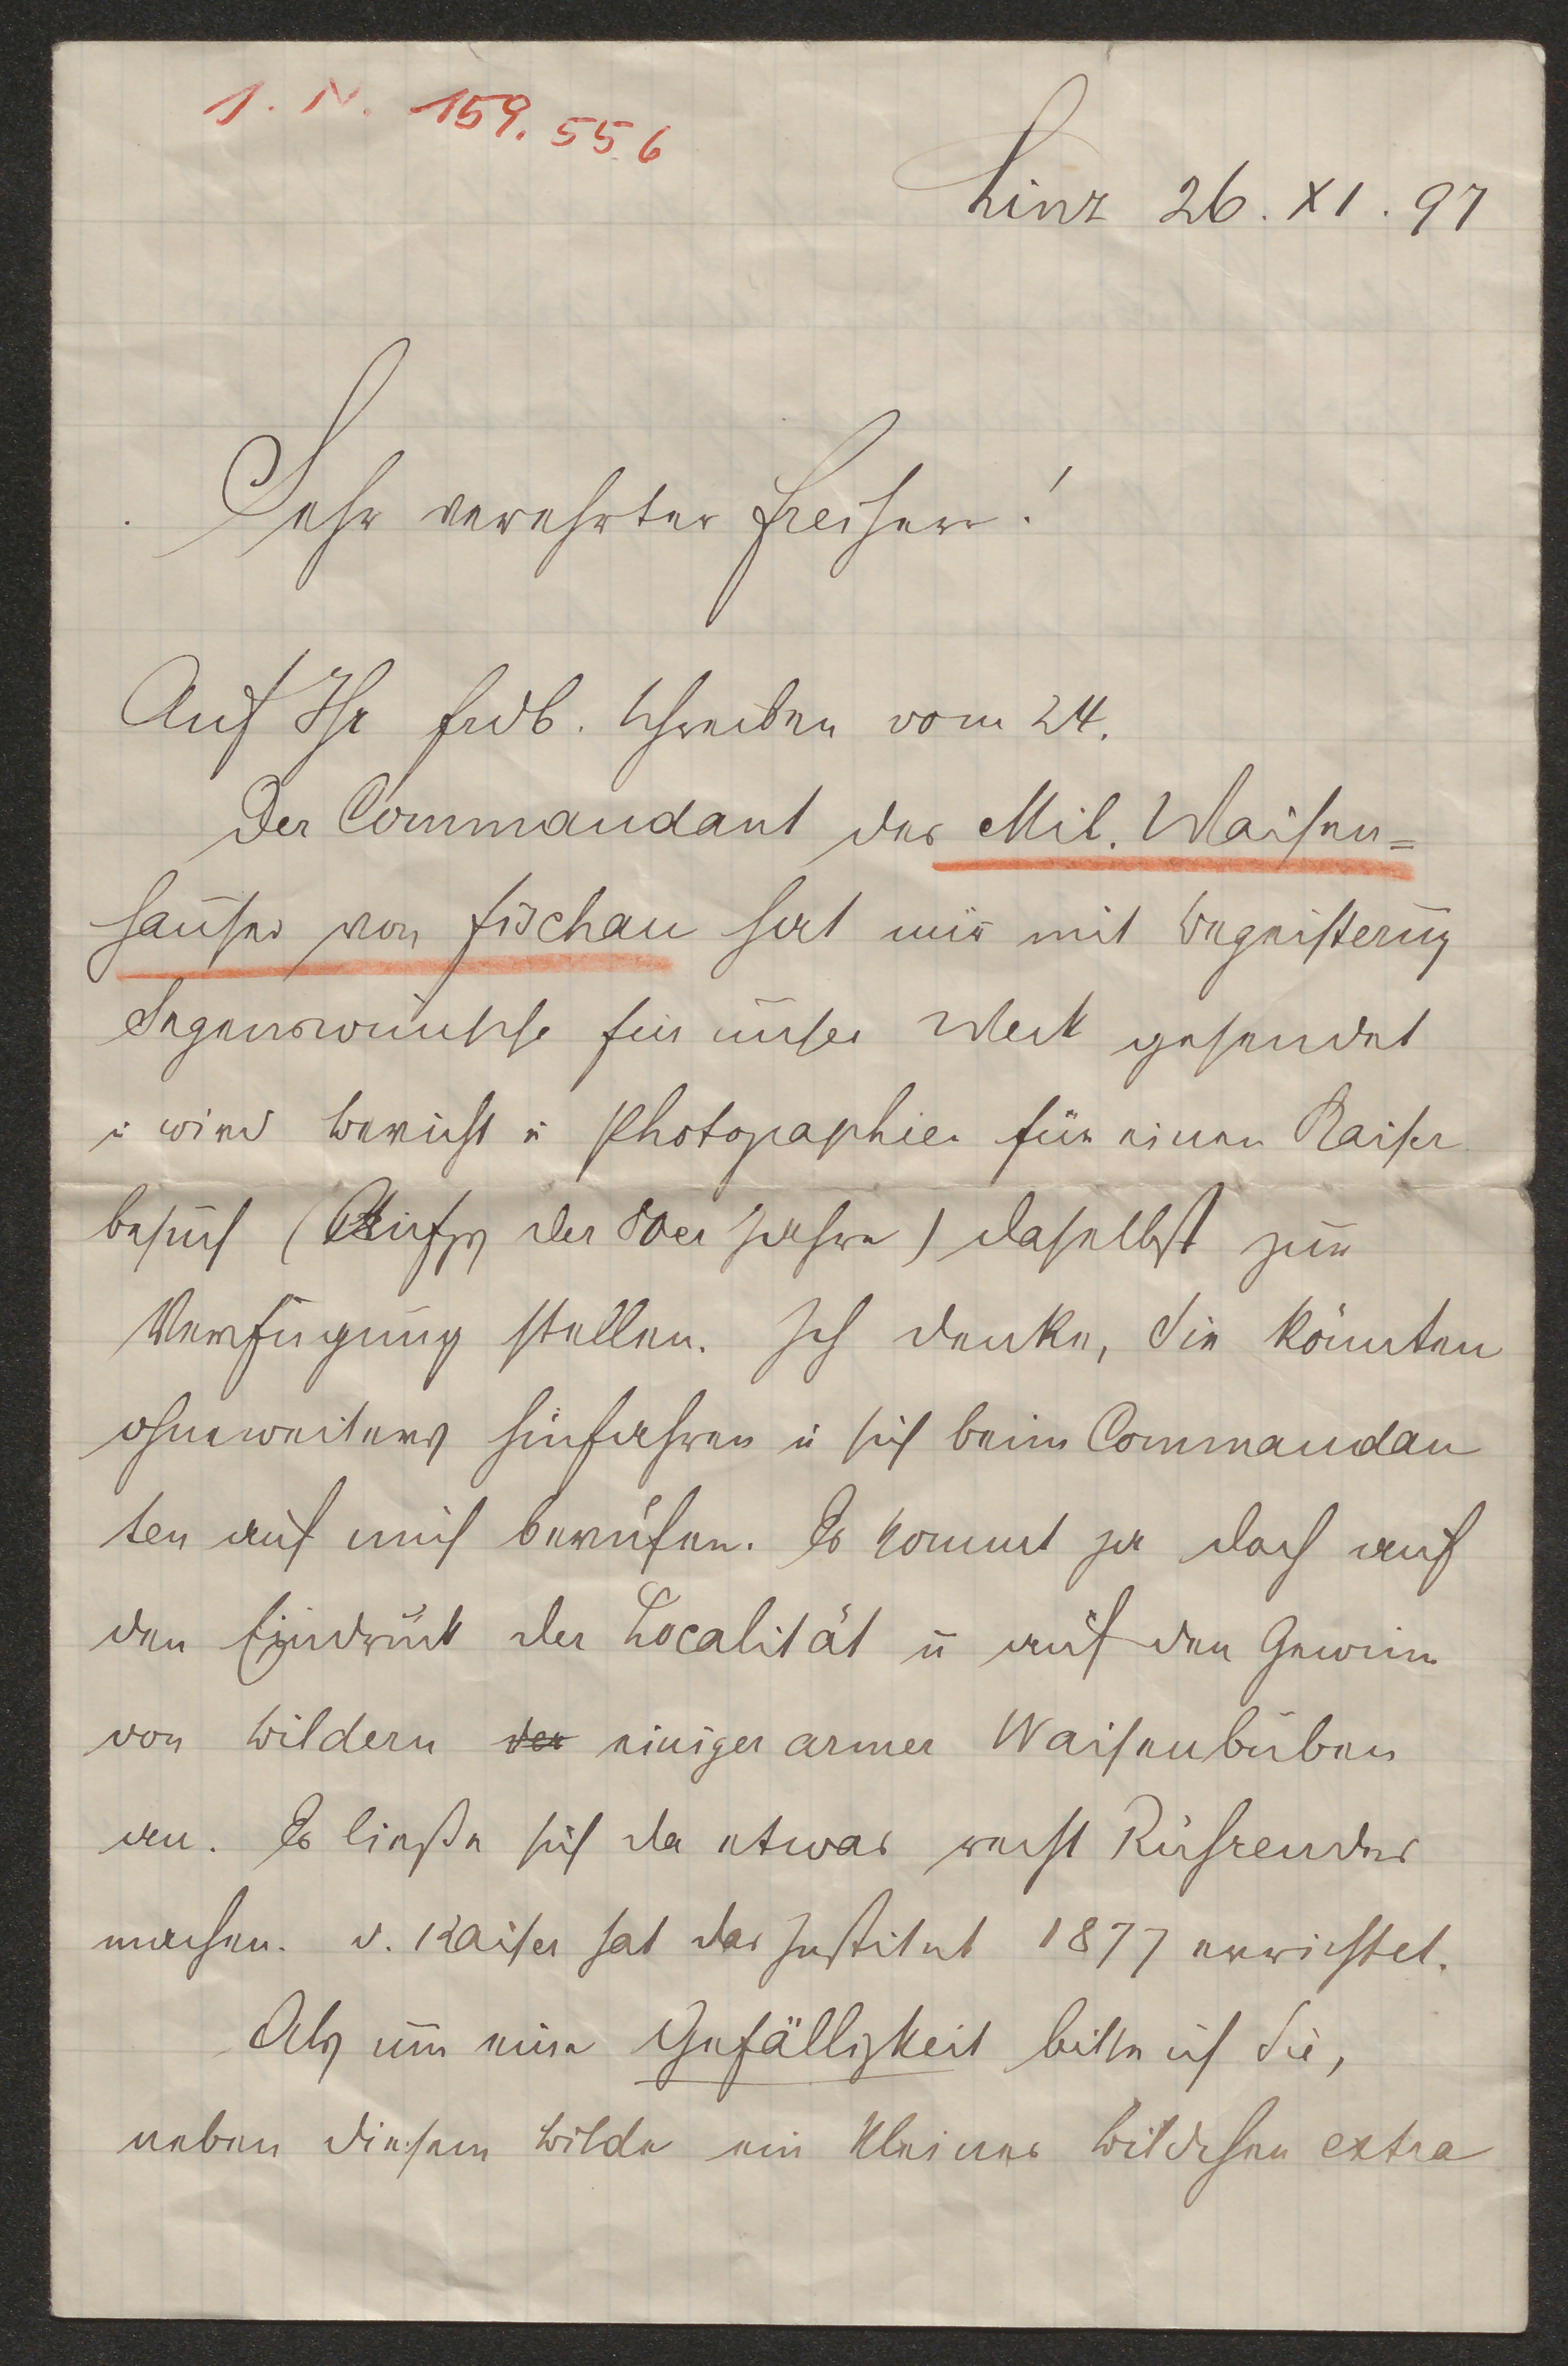 I. N. 159.556
Linz 26. XI. 97
Sehr verehrter Freiherr!
Auf Ihr frdl. Schreiben vom 24.
Der Commandant des Mil. Waisen=
hauses von Fischau hat mir mit Begeisterung
Segenswünsche für unser Werk gesendet
u wird Bericht u Photographie für einen Kaiser
besuch (Anfgs der 80er Jahre) daselbst zur
Verfügung stellen. Ich denke, Sie könnten
ohneweiters hinfahren u sich beim Commandan
ten auf mich berufen. Es kommt ja doch auf
den Eindruck der Localität u auf den Gewinn
von Bildern der einiger armer Waisenbuben
an. Es ließe sich da etwas recht Rührendes
machen. D. Kaiser hat das Institut 1877 errichtet.
Als um eine Gefälligkeit bitte ich Sie,
neben diesem Bilde ein kleines Bildchen extra